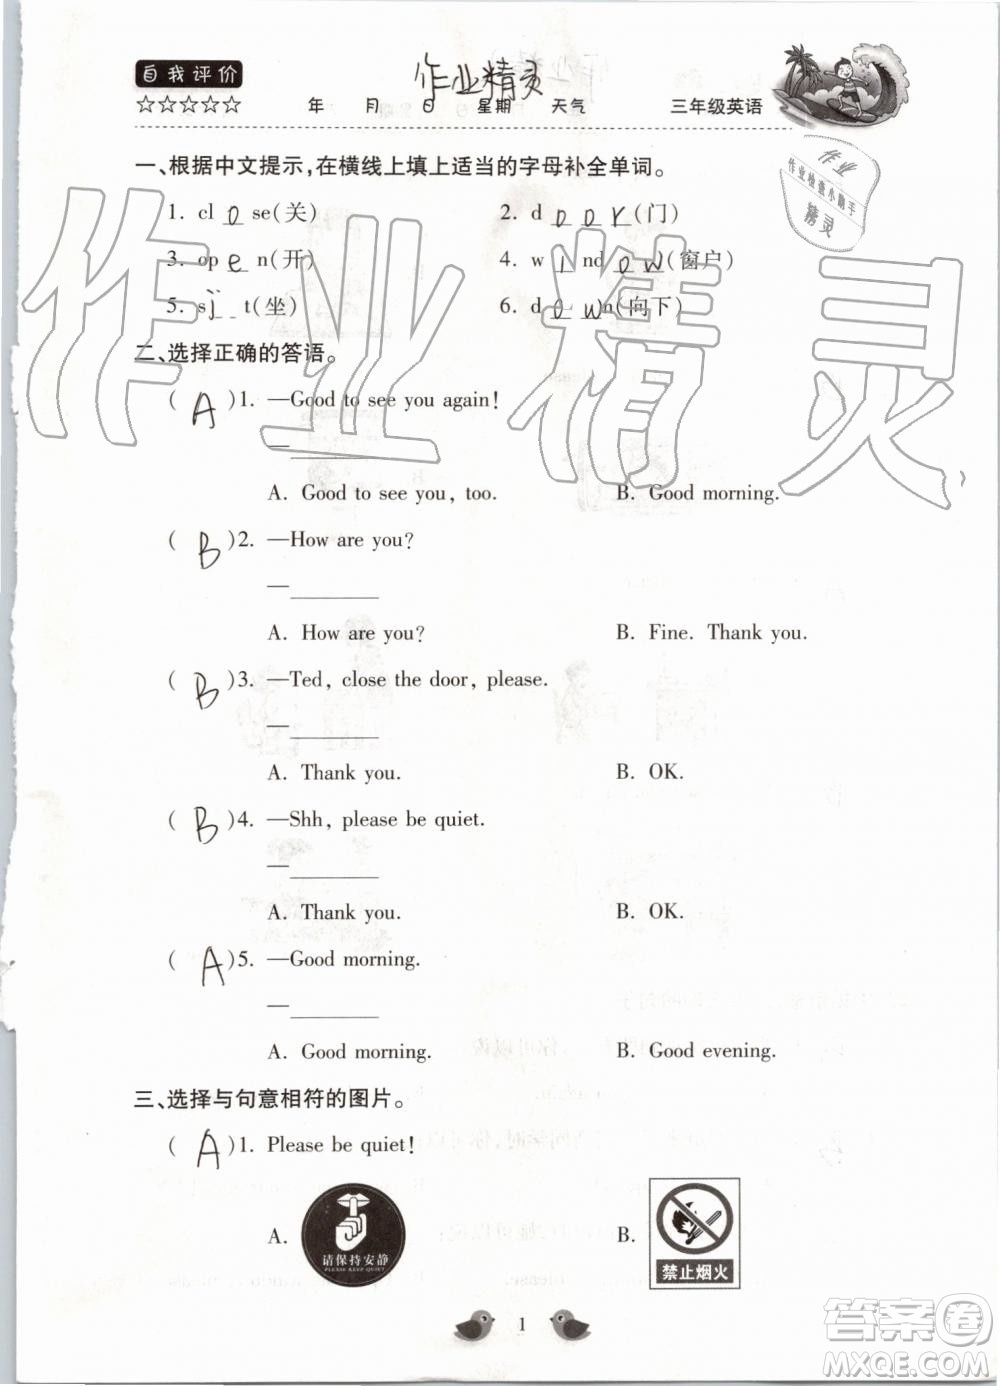 自我评价
作业精灵
☆☆☆☆☆ 年 月 日 星期 天气 三年级英语
作业
作业检查小助手
精灵
一、根据中文提示,在横线上填上适当的字母补全单词。
1. cl o se(关) 2. d o o r(门)
3. op e n(开) 4. w i nd o w(窗户)
5. s i t(坐) 6. d o w n(向下)
二、选择正确的答语。
( A )1. —Good to see you again!
—________
A. Good to see you, too. B. Good morning.
( B )2. —How are you?
—________
A. How are you? B. Fine. Thank you.
( B )3. —Ted, close the door, please.
—________
A. Thank you. B. OK.
( B )4. —Shh, please be quiet.
—________
A. Thank you. B. OK.
( A )5. —Good morning.
—________
A. Good morning. B. Good evening.
三、选择与句意相符的图片。
( A )1. Please be quiet!
A. B.
请保持安静
PLEASE KEEP QUIET
禁止烟火
1
作业精灵
答案卷
MXQE.COM